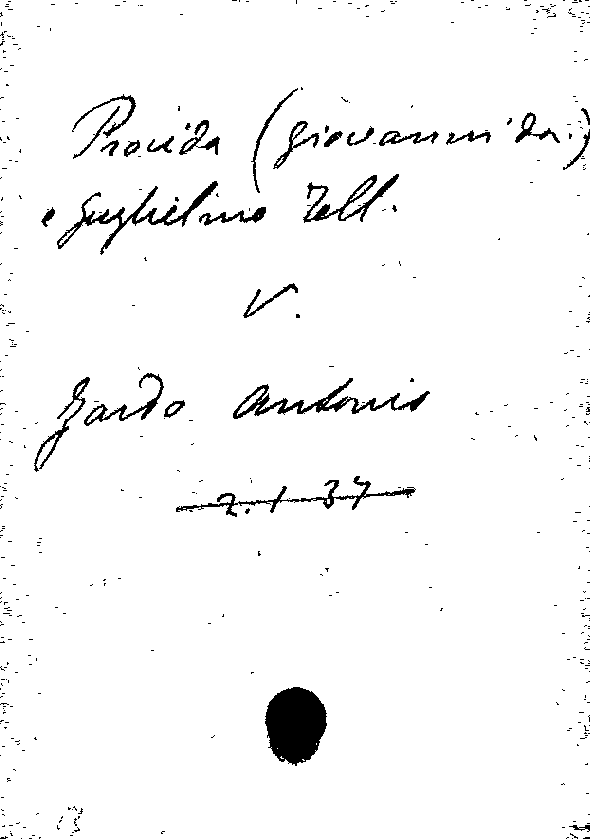 Procida (Giovanni da.)
e Guglielmo Tell.
V.
Zardo Antonio
2. 1 37
13